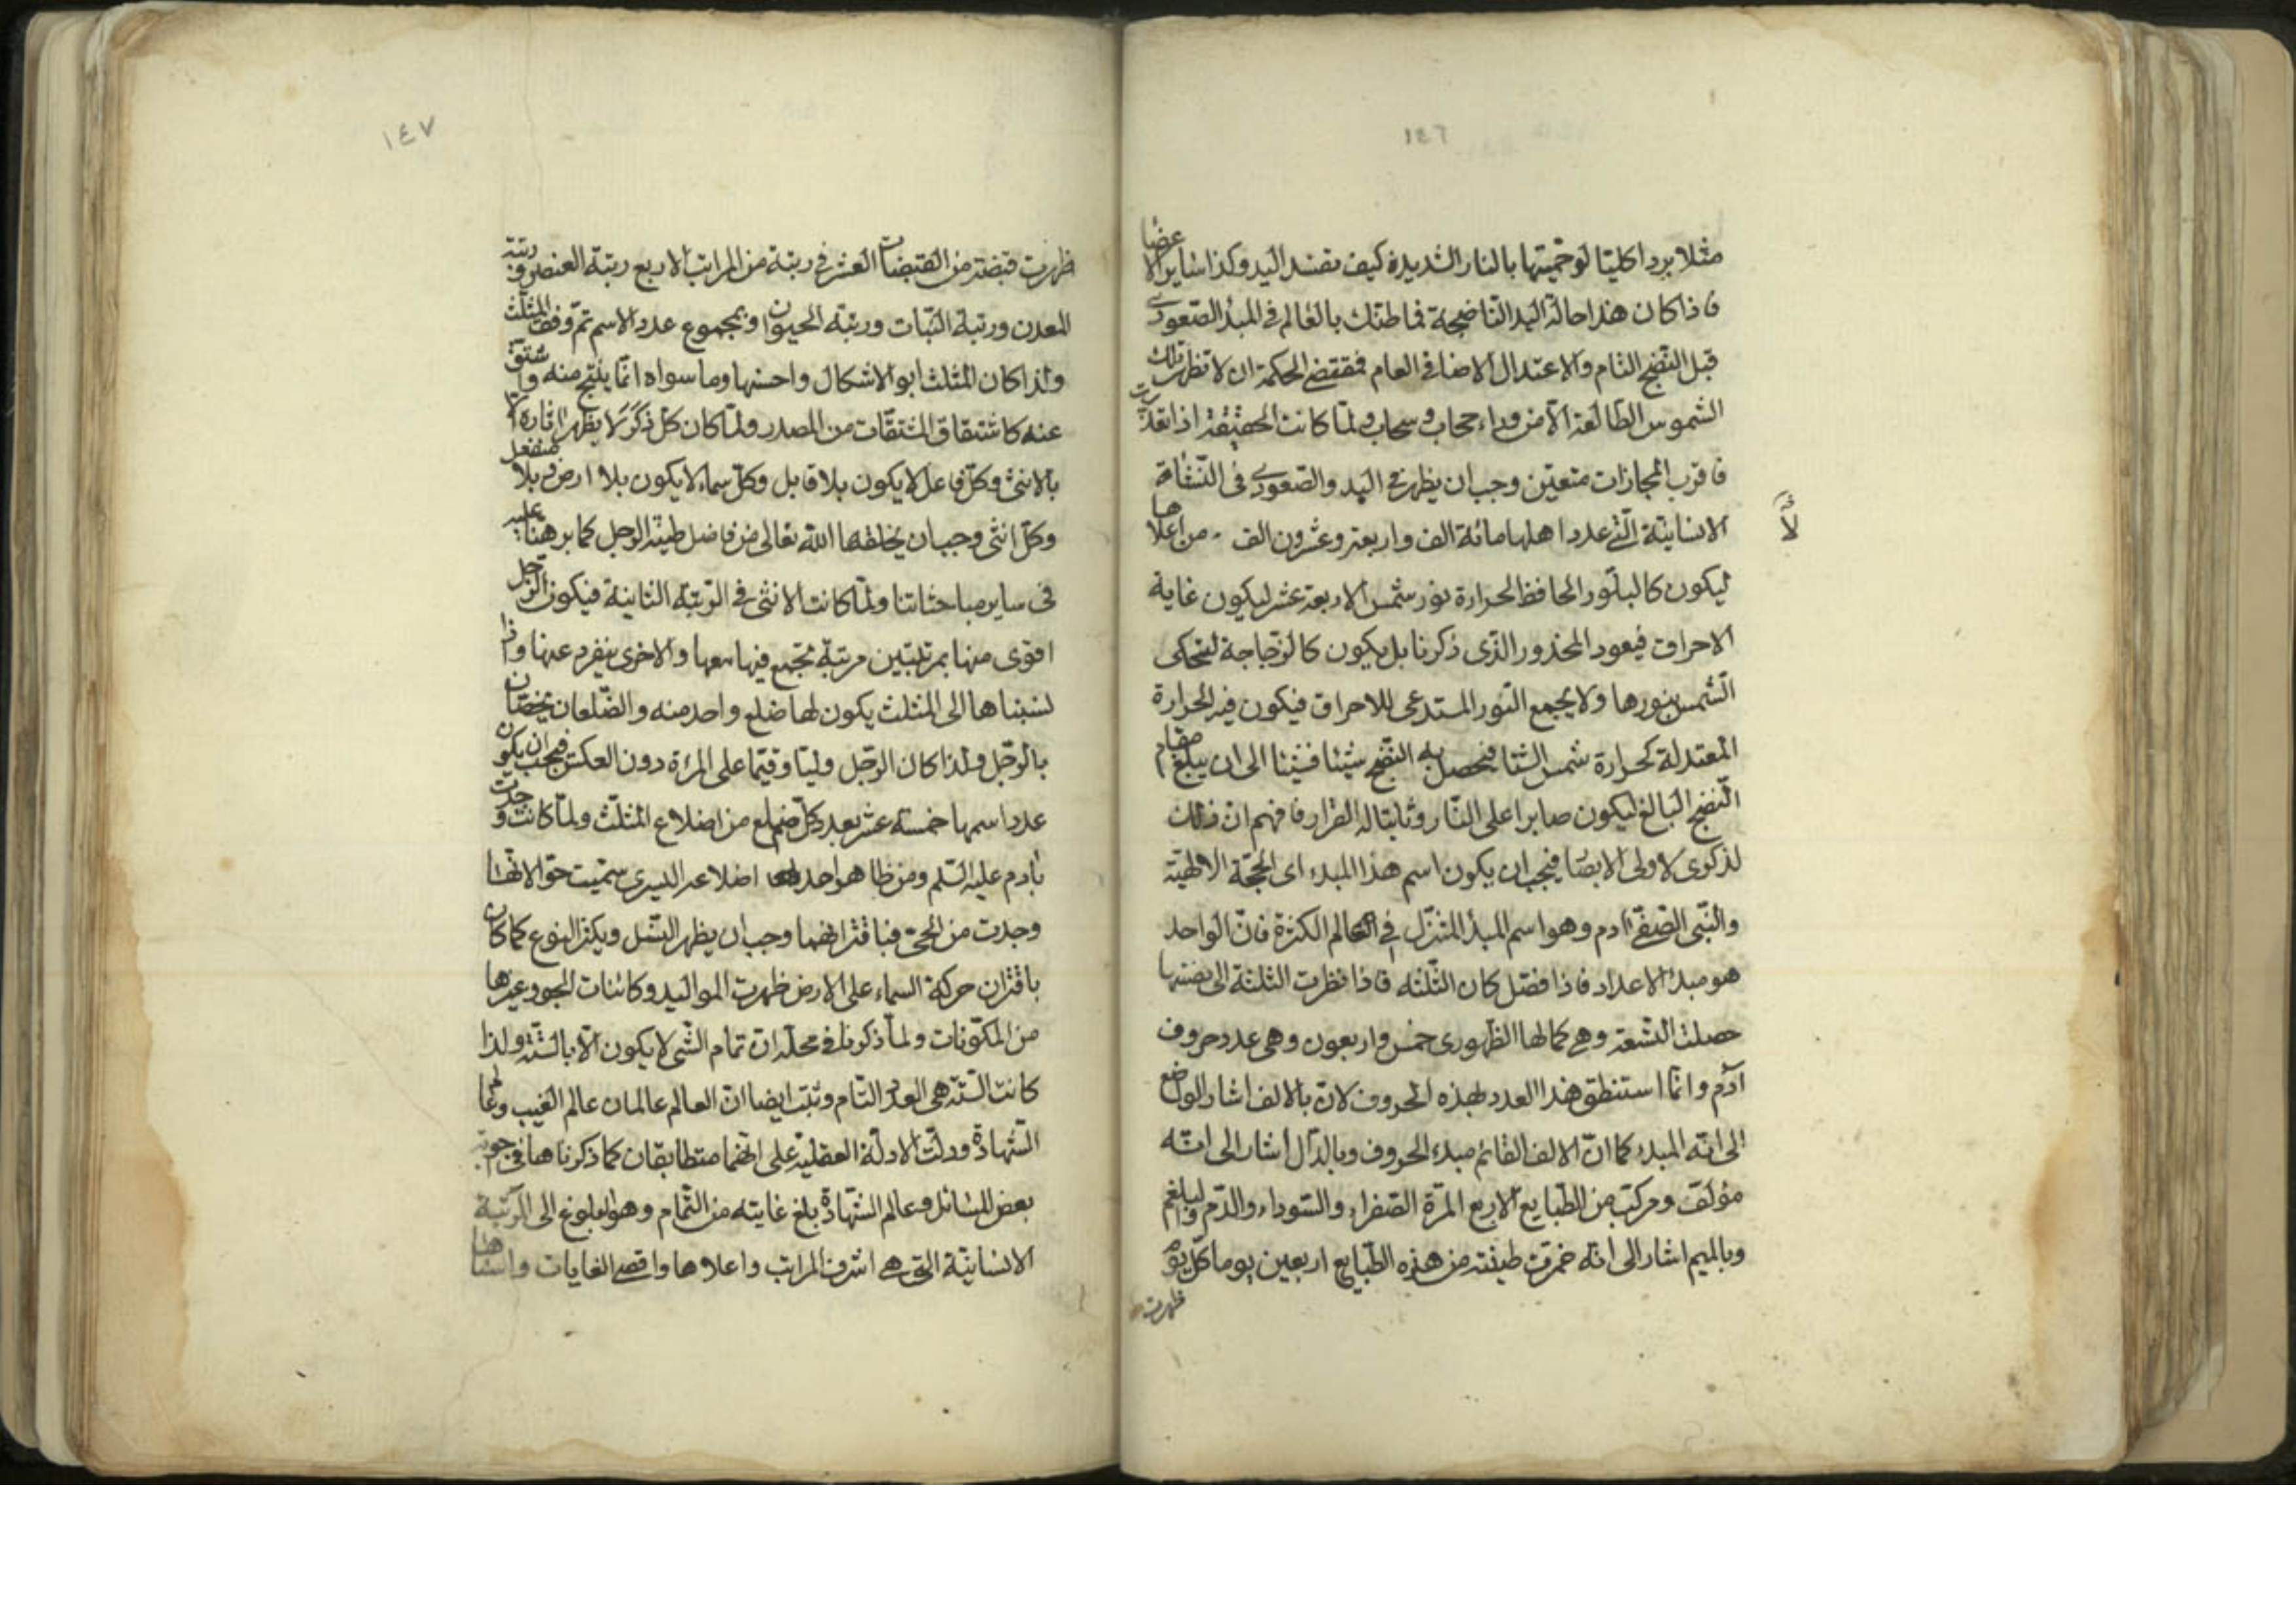 ١٤٦
مثلا بردا كليتا لو حميتها بالنار الشديدة كيف تفسد اليد وكذا سائر الاعضا
فاذا كان هذا حالة اليد الناضجة فما ظنك بالعالم في المبدأ الصعودي
قبل النضج التام والاعتدال الاضافي العام فمقتضى الحكمة ان لا تظهر تلك
الشموس الطالعة الا من وراء حجاب وسحاب ولما كانت الحقيقة اذا تعذرت
فاقرب المجازات متعين وجب ان يظهر في البدء الصعودي في النشأة
الانسانية التي عدد اهلها مائة الف واربعة وعشرون الف من اعلاها
لّا
ليكون كالبلور الحافظ لحرارة نور شمس الاربعة عشر ليكون غاية
الاحراق فيعود المحذور الذي ذكرنا بل يكون كالزجاجة لتحكي
الشمس بنورها ولا يجمع النور المستدعى للاحراق فيكون فيه الحرارة
المعتدلة كحرارة شمس الشتا فيحصل به النضج شيئا فشيئا الى ان يبلغ مقام
النضج البالغ ليكون صابرا على النار وثابتا له القرار فافهم ان في ذلك
لذكرى لاولى الابصا فيجب ان يكون اسم هذا المبدء اى الحجة الالهية
والنبي الصفي آدم وهو اسم المبدأ المتنزل في العالم الكثرة فان الواحد
هو مبدء الاعداد فاذا فصل كان الثلثه فاذا نظرت الثلثة الى نفسها
حصلت التسعة وهي كمالها الظهوري خمس واربعون وهي عدد حروف
آدم وانما استنطق هذا العدد لهذه الحروف لان بالالف اشار الواضع
الى انه المبدء كما ان الالف القائم مبدء الحروف وبالدال اشار الى انه
مؤلف ومركب من الطبايع الاربع المرة الصفراء والسوداء والدم والبلغم
وبالميم اشار الى انه خمرت طينته من هذه الطبايع اربعين يوما كل يوم
ظهرت
١٤٧
ظهرت قبضة من القبضات العشر في رتبة من المراتب الاربع رتبة العنصر ورتبة
المعدن ورتبة النبات ورتبة الحيوان وبمجموع عدد الاسم تم وفق المثلث
ولذا كان المثلث ابو الاشكال واحسنها وما سواه انما ينتج منه واشتق
عنه كاشتقاق المشتقات من المصدر ولما كان كل ذكر لا يظهر اثاره الا
بالانثى وكل فاعل لا يكون بلا قابل وكل سماء لا يكون بلا ارض بلا منفعل
وكل انثى وجب ان يخلقها الله تعالى من فاضل طينة الرجل كما برهنا عليه
في ساير مباحثاتنا ولما كانت الانثى في الرتبة الثانية فيكون الرجل
اقوى منها بمرتبتين مرتبة تجتمع فيها معها والاخرى ينفرد عنها واذا
نسبناها الى المثلث يكون لها ضلع واحد منه والضلعان يختصان
بالرجل ولذا كان الرجل وليا وقيما على المرءة دون العكس فيجب ان يكون
عدد اسمها خمسة عشر بعدد كل ضلع من اضلاع المثلث ولما كانت وجدت
بادم عليه السلم ومن ظاهر احد اضلاعه اليسرى سميت حوا لانها
وجدت من الحي فباقترانهما وجب ان يظهر النسل ويكثر النوع كما كان
باقتران حركة السماء على الارض ظهرت المواليد وكائنات الجو وغيرها
من المكونات ولما ذكرنا في محله ان تمام الشي لا يكون الا بالستة ولذا
كانت الستة هي العدد التام وثبت ايضا ان العالم عالمان عالم الغيب وعالم
الشهادة ودلت الادلة العقلية على انهما متطابقان كما ذكرناها في اجوبة
بعض المسائل وعالم الشهادة بلغ غايته من التمام وهو البلوغ الى الرتبة
الانسانية التي هي اشرف المراتب واعلاها واقصى الغايات واسناها